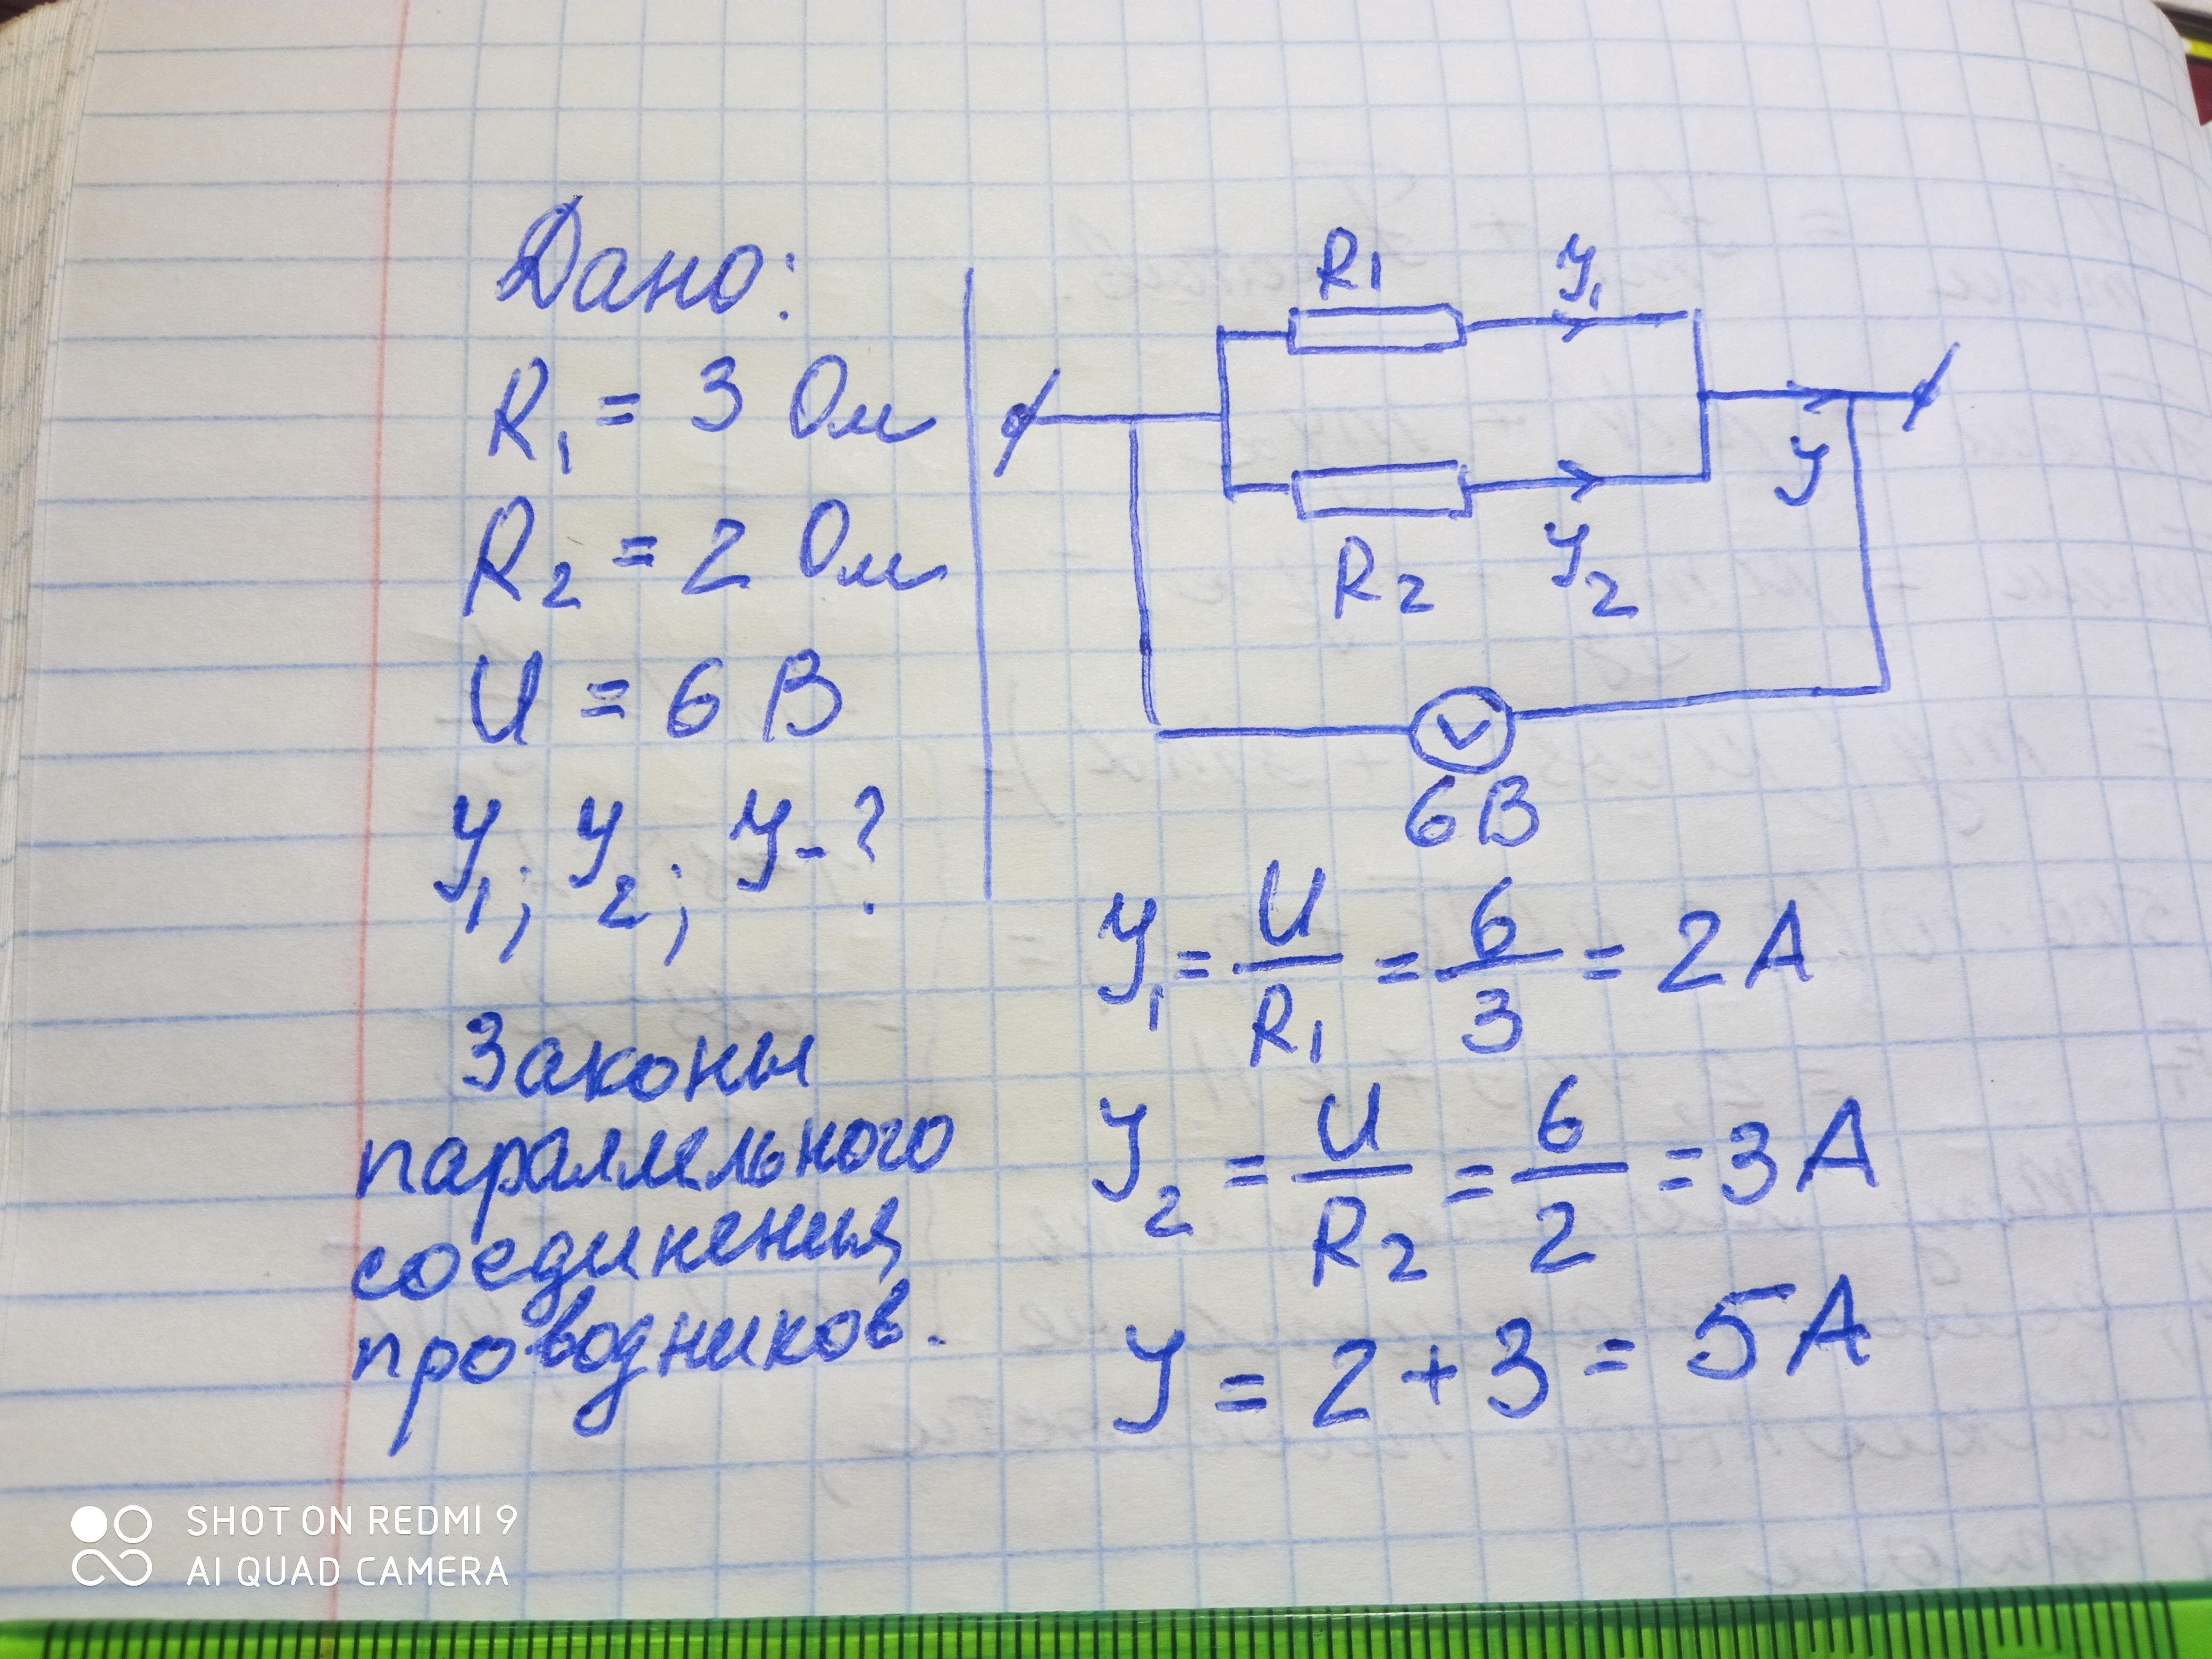 Дано:
R1 = 3 Ом
R2 = 2 Ом
U = 6 В
У1; У2; У-?
Законы
параллельного
соединения
проводников.
R1
У1
У
R2
У2
V
6В
У1 = U/R1 = 6/3 = 2 А
У2 = U/R2 = 6/2 = 3 А
У = 2 + 3 = 5 А
SHOT ON REDMI 9
AI QUAD CAMERA